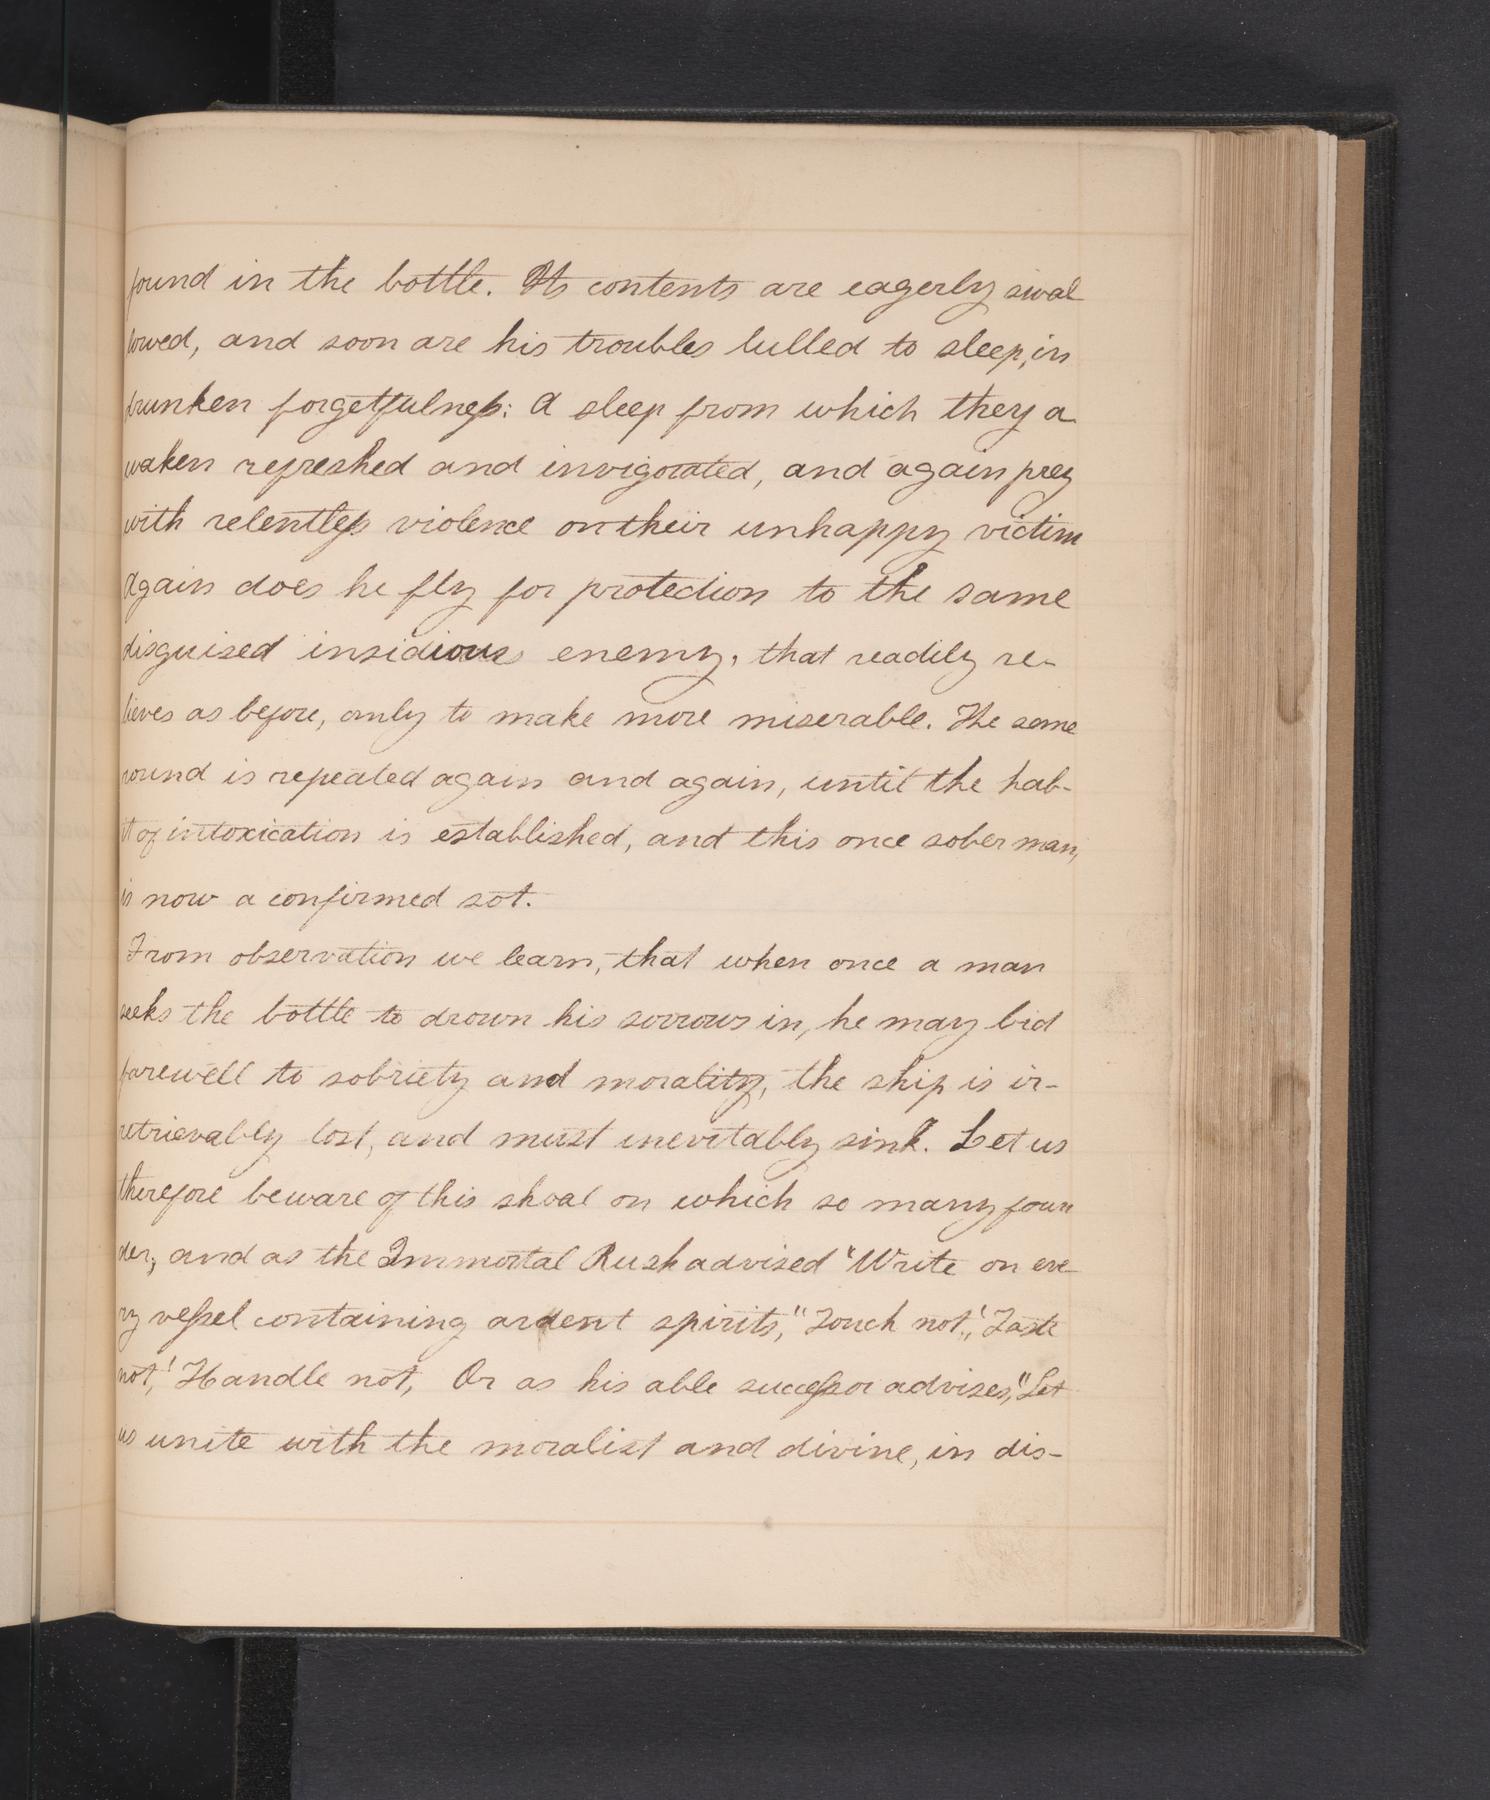 found in the bottle. Its contents are eagerly swal
lowed, and soon are his troubles lulled to sleep, in
drunken forgetfulness: A sleep from which they a
waken refreshed and invigorated, and again prey
with relentless violence on their unhappy victim
Again does he fly for protection to the same
disguised insidious enemy, that readily re-
lieves as before, only to make more miserable. The same
round is repeated again and again, until the hab-
it of intoxication is established, and this once sober man,
is now a confirmed sot.
From observation we learn, that when once a man
seeks the bottle to drown his sorrows in, he may bid
farewell to sobriety and morality, the ship is ir-
retrievably lost, and must inevitably sink. Let us
therefore beware of this shoal on which so many foun
der, and as the Immortal Rush advised "Write on eve
ry vessel containing ardent spirits," Touch not,' Taste
not,' Handle not, Or as his able successor advises, "Let
us unite with the moralist and divine, in dis-